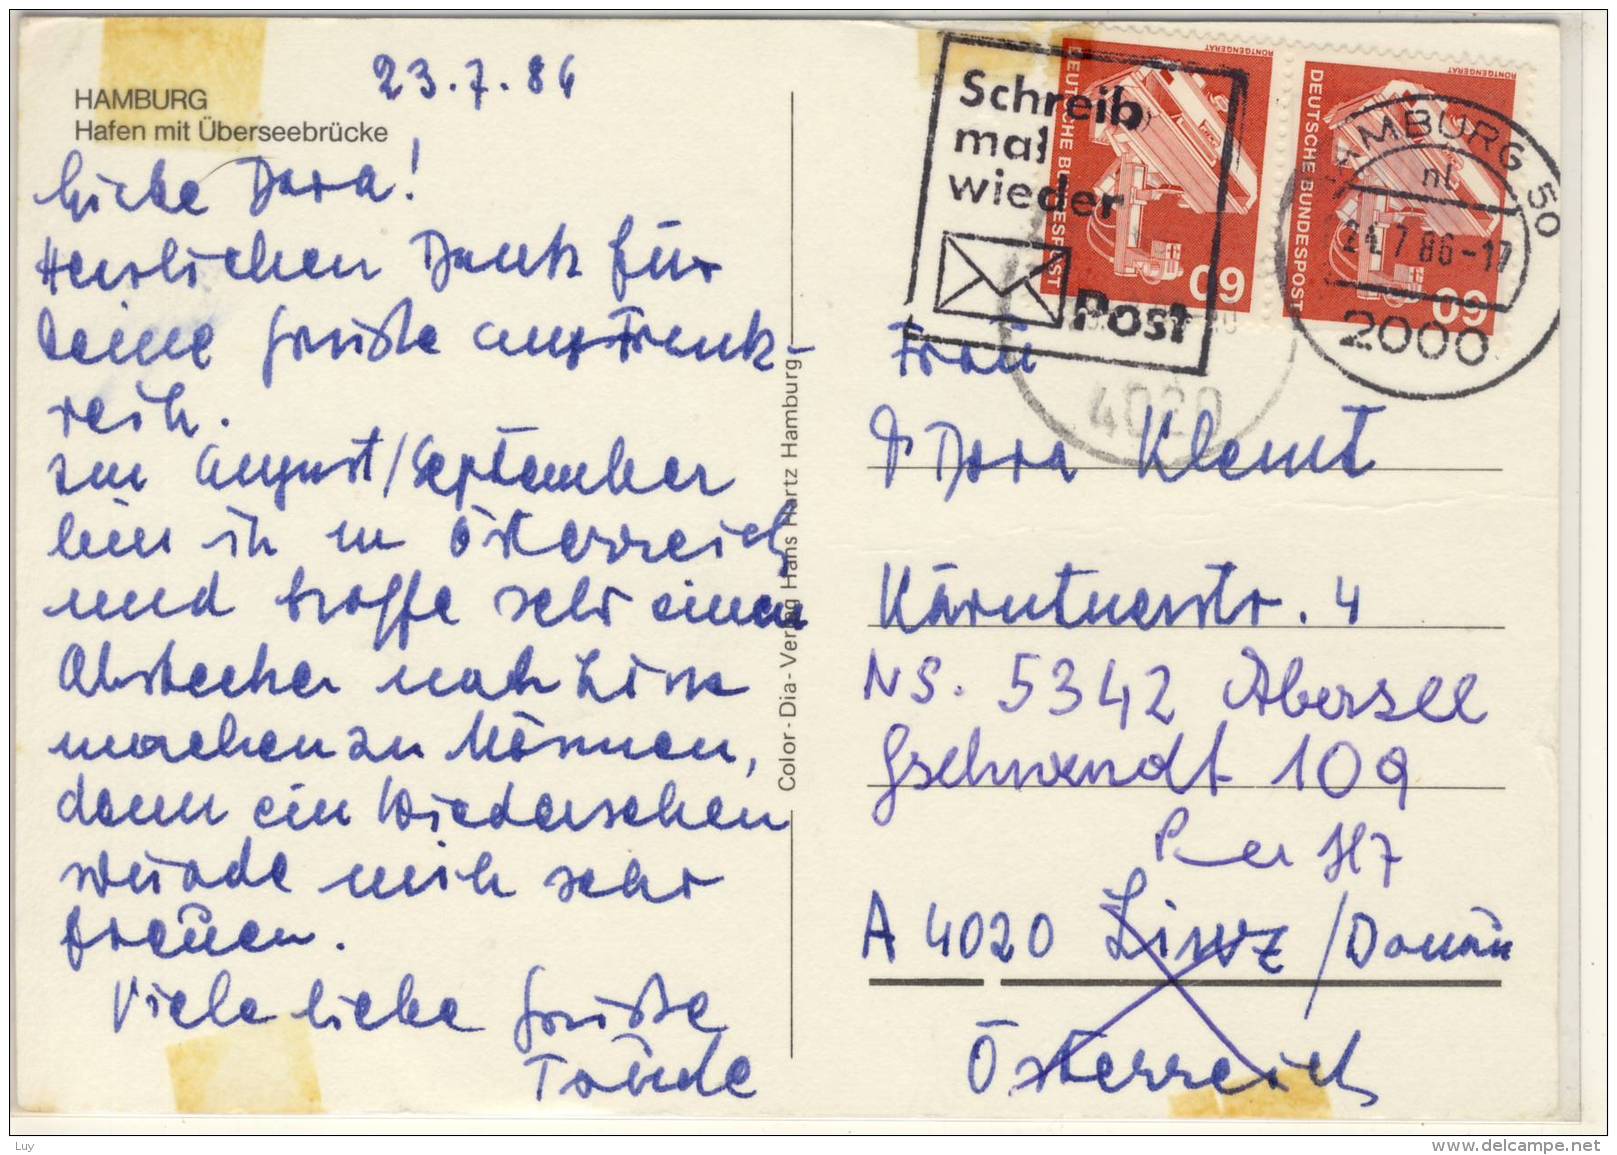 HAMBURG
Hafen mit Überseebrücke
23.7.86
Liebe Dora!
Herzlichen Dank für
Deine Grüße aus Frank-
reich.
Im August/September
bin ich in Österreich
und hoffe sehr einen
Abstecher nach Linz
machen zu können,
denn ein Wiedersehen
würde mich sehr
freuen.
Viele liebe Grüße
Traude
Color-Dia-Verlag Hans Hartz Hamburg
Schreib
mal
wieder
Post
DEUTSCHE BUNDESPOST
RÖNTGENGERÄT
60
DEUTSCHE BUNDESPOST
RÖNTGENGERÄT
60
HAMBURG 50
nl
24.7.86-17
2000
4020
Frau
Dora Klemt
Kärntnerstr. 4
NS. 5342 Abersee
Gschwendt 109
A 4020 Linz/Donau
Österreich
Luy
www.delcampe.net